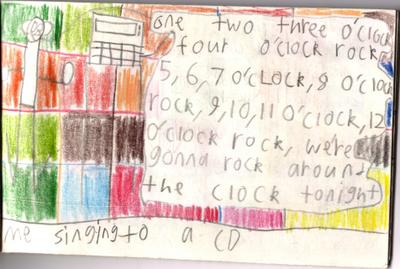 one two three o'clock
four o'clock rock
5, 6, 7 o'clock, 8 o'clock
rock, 9, 10, 11 o'clock, 12
o'clock rock, we're
gonna rock around
the clock tonight
me singing to a CD